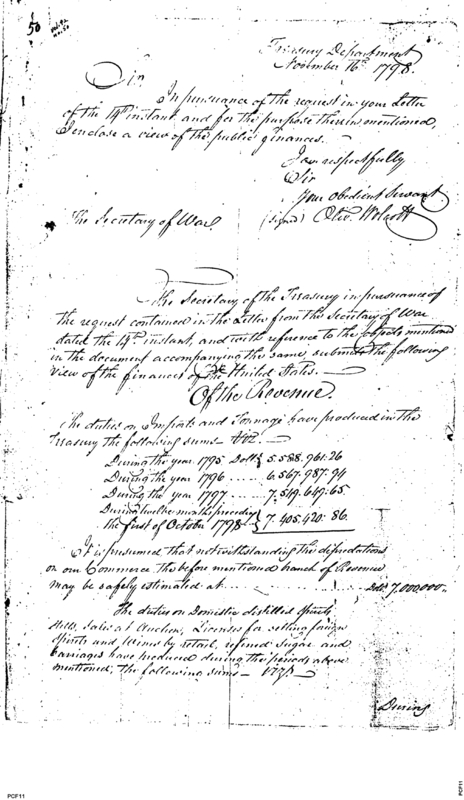 50
Treasury Department
November 16th 1798.
Sir
In pursuance of the request in your Letter
of the 14th instant and for the purpose therein mentioned,
I enclose a view of the public finances.
I am respectfully
Sir
Your Obedient Servant
The Secretary of War (signed) Oliv. Wolcott
The Secretary of the Treasury in pursuance of
the request contained in the Letter from the Secretary of War
dated the 14th instant, and with reference to the objects mentioned
in the document accompanying the same, submits the following
view of the finances of the United States. —
Of the Revenue.
The duties on Imports and Tonnage have produced in the
Treasury the following sums Viz. —
During the year 1795 Dolls 5.588.961.26
During the year 1796 ...... 6.567.987.94
During the year 1797 ...... 7.549.649.65.
During twelve months preceding
the first of October 1798 7.405.420.86.
It is presumed that notwithstanding the depredations
on our Commerce the before mentioned branch of Revenue
may be safely estimated at Dolls 7,000,000
The duties on Domestic distilled Spirits
Stills, Sales at Auction, Licences for selling foreign
Spirits and Wines by retail, refined Sugar and
Carriages have produced during the periods above
mentioned, the following sums — Viz. —
During
PCF11
PCF11